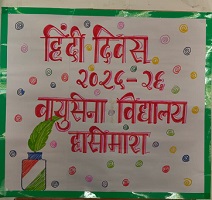 हिंदी दिवस
२०२५-२६
वायुसेना विद्यालय
हासीमारा